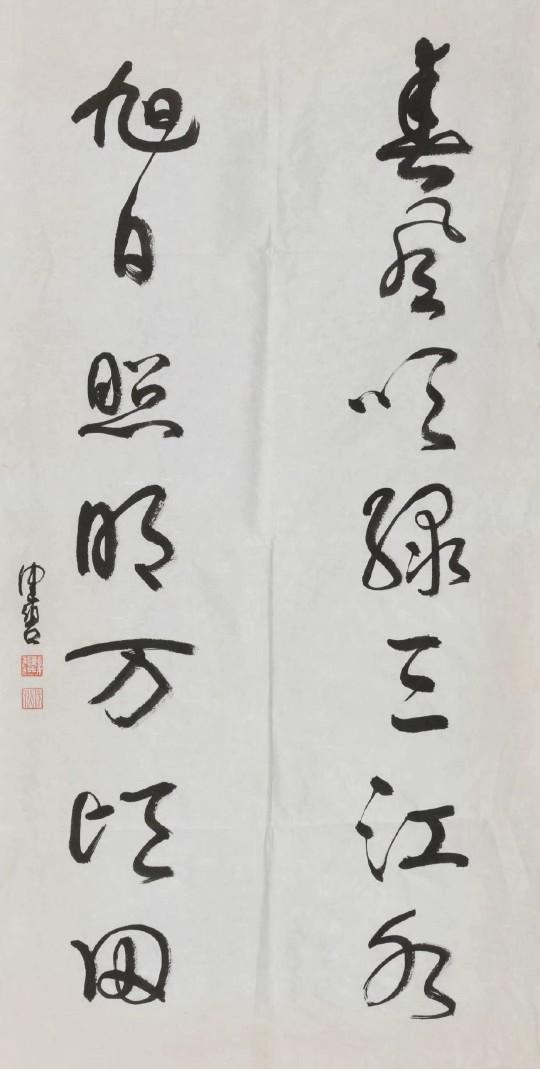 春风吹绿三江水
旭日照明万顷田